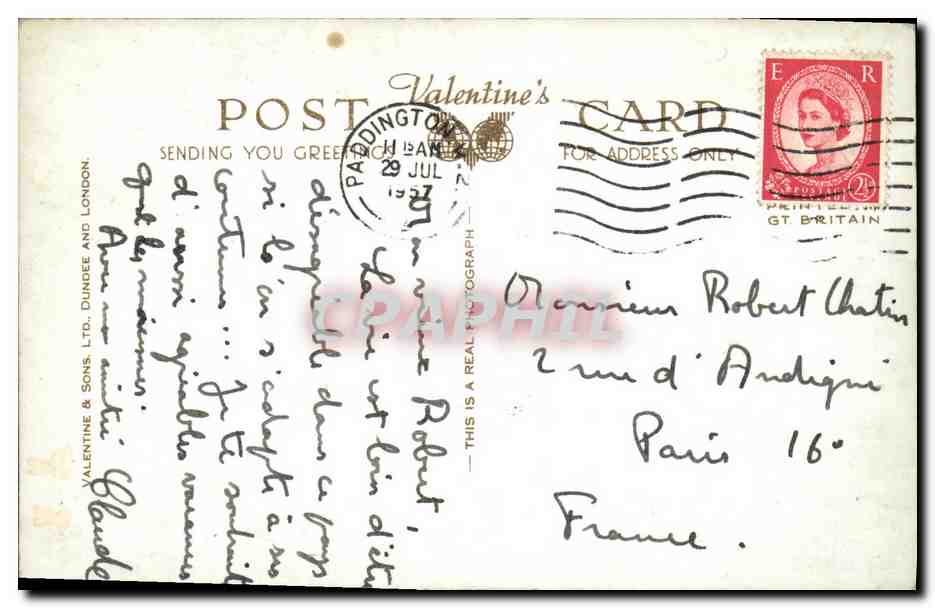 Valentine's
POST CARD
SENDING YOU GREETINGS
FOR ADDRESS ONLY
PADDINGTON
11 15 AM
29 JUL
1957
E R
POSTAGE
2½
PRINTED IN
GT. BRITAIN
VALENTINE & SONS. LTD., DUNDEE AND LONDON.
THIS IS A REAL PHOTOGRAPH
CPAPHIL
Mon vieux Robert,
La vie est loin d'être
désagréable dans ce pays
si l'on s'adapte à ses
coutumes... Je te souhaite
d'aussi agréables vacances
que les miennes.
Avec mon amitié Claude
Monsieur Robert Chatin
2 rue d'Andigné
Paris 16°
France.